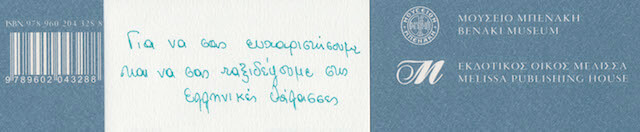 ISBN 978-960-204-328-8
9789602043288
Για να σας ευχαριστήσουμε
και να σας ταξιδέψουμε στις
Ελληνικές θάλασσες
ΜΟΥΣΕΙΟ ΜΠΕΝΑΚΗ
BENAKI MUSEUM
ΕΚΔΟΤΙΚΟΣ ΟΙΚΟΣ ΜΕΛΙΣΣΑ
MELISSA PUBLISHING HOUSE